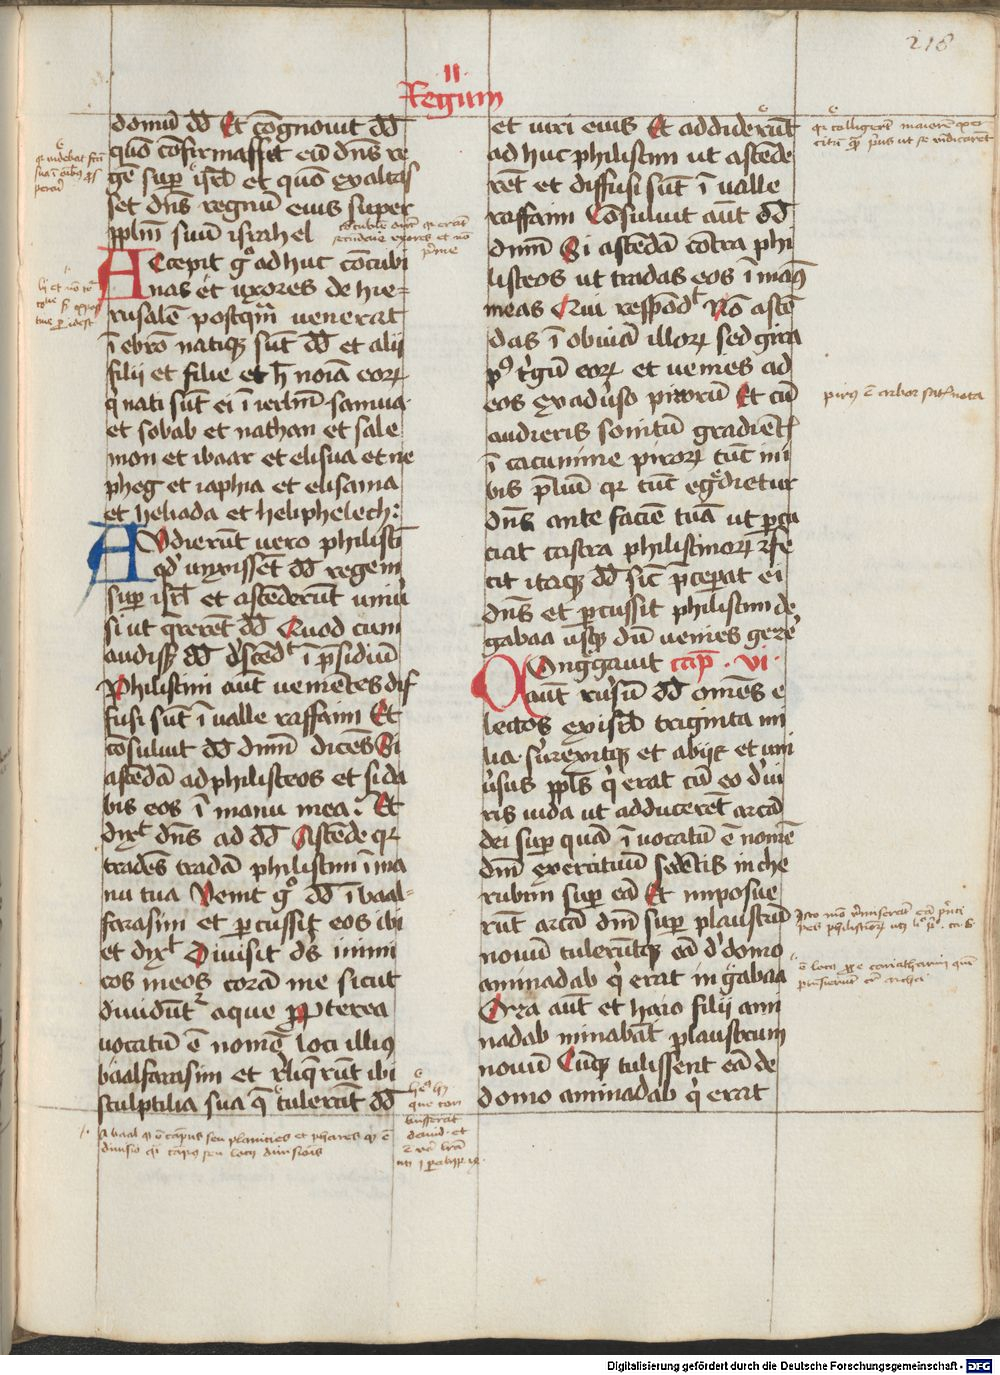 218
II
Regum
domū dd Et cōgnouit dd
quō cōfirmasset eū dns re
gē sup isrl et quō exaltas
set dns regnū eius super
pplm suū israhel
Accepit gº ad huc cōcubi
nas et uxores de hie
rusalē postqm uenerat
ī ebrō natiqz sūt dd et alii
filii et filie et h noīa eorꝝ
q nati sūt ei ī ierlm samua
et sobab et nathan et sale
mon et ibaar et elisua et ne
pheg et iaphia et elisama
et heliada et heliphelech:
Audierūt uero philisti
qd unxisset dd regem
sup isrl et ascēderūt uniu
si ut qrerēt dd Quod cum
audiss dd dscēdt ī psidiū
Philistini aūt ueniētes dif
fusi sūt ī ualle raffaim Et
cōsuluit dd dnm dicēs Si
ascēdā ad philisteos et si da
bis eos ī manu mea? Et
dixt dns ad dd Ascēde qr
tradēs tradā philistim ī ma
nu tua Venit gº dd ī baal
farasim et percussit eos ibi
et dixt Diuisit ds inimi
cos meos corā me sicut
diuidūtr aque Propterea
uocatū ē nomē loci illius
baalfarasim et rliqrūt ibi
sculptilia sua q tulerūt dd
et uiri eius Et addiderūt
ad huc philistim ut ascēde
rēt et diffusi sūt ī ualle
raffaim Cōsuluit aūt dd
dnm Si ascēdā cōtra phi
listeos ut tradas eos ī man9
meas Qui respōdt Nō ascē
das ī obuiā illorꝝ sed gira
p9 tgū eorꝝ et uenies ad
eos ex aduso pirorū Et cū
audieris sonitū gradiēt
ī cacumine pirorꝝ tūc ini
bis pliū qr tūc egdietur
dns ante faciē tuā ut pcu
ciat castra philistinorꝝ Fe
cit itaqz dd sic pceperat ei
dns et percussit philistim de
gabaa usqz dū uenies gezer
Cōnggauit cap. vi.
aūt rusū dd omēs e
lectos ex isrl triginta mi
lia surexitqz et abijt et uni
usus ppls q erat cū eo d ui
ris iuda ut adducerēt arcā
dei sup quā īuocatū ē nomē
dni exercituū sedētis in che
rubim sup eā Et imposue
rūt arcā dni sup plaustrū
nouū tulerūtqz eā d domo
aminadab q erat in gabaa
Oza aūt et haio filii ami
nadab minabāt plaustrum
nouū Cūqz tulissent eā de
domo aminadab q erat
pirus ē arbor satis nota
Digitalisierung gefördert durch die Deutsche Forschungsgemeinschaft - DFG